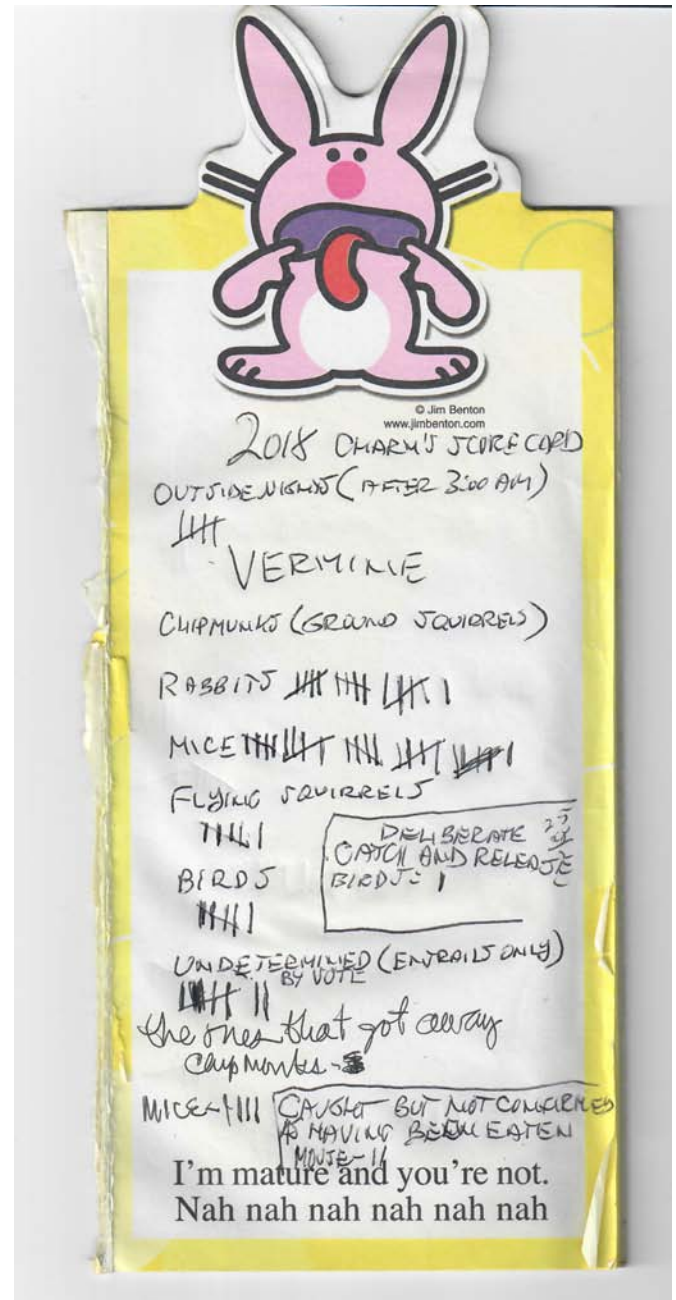 © Jim Benton
www.jimbenton.com
2018 CHARM'S SCORECARD
OUTSIDE NIGHTS (AFTER 3:00 AM)
VERMINIE
CHIPMUNKS (GROUND SQUIRRELS)
RABBITS
MICE
FLYING SQUIRRELS
DELIBERATE
CATCH AND RELEASE
BIRDS
BIRDS: I
UNDETERMINED (ENTRAILS ONLY)
BY VOTE
the ones that got away
Chipmonks -
MICE - IIII
CAUGHT BUT NOT CONFIRMED
AS HAVING BEEN EATEN
MOUSE - II
I'm mature and you're not.
Nah nah nah nah nah nah